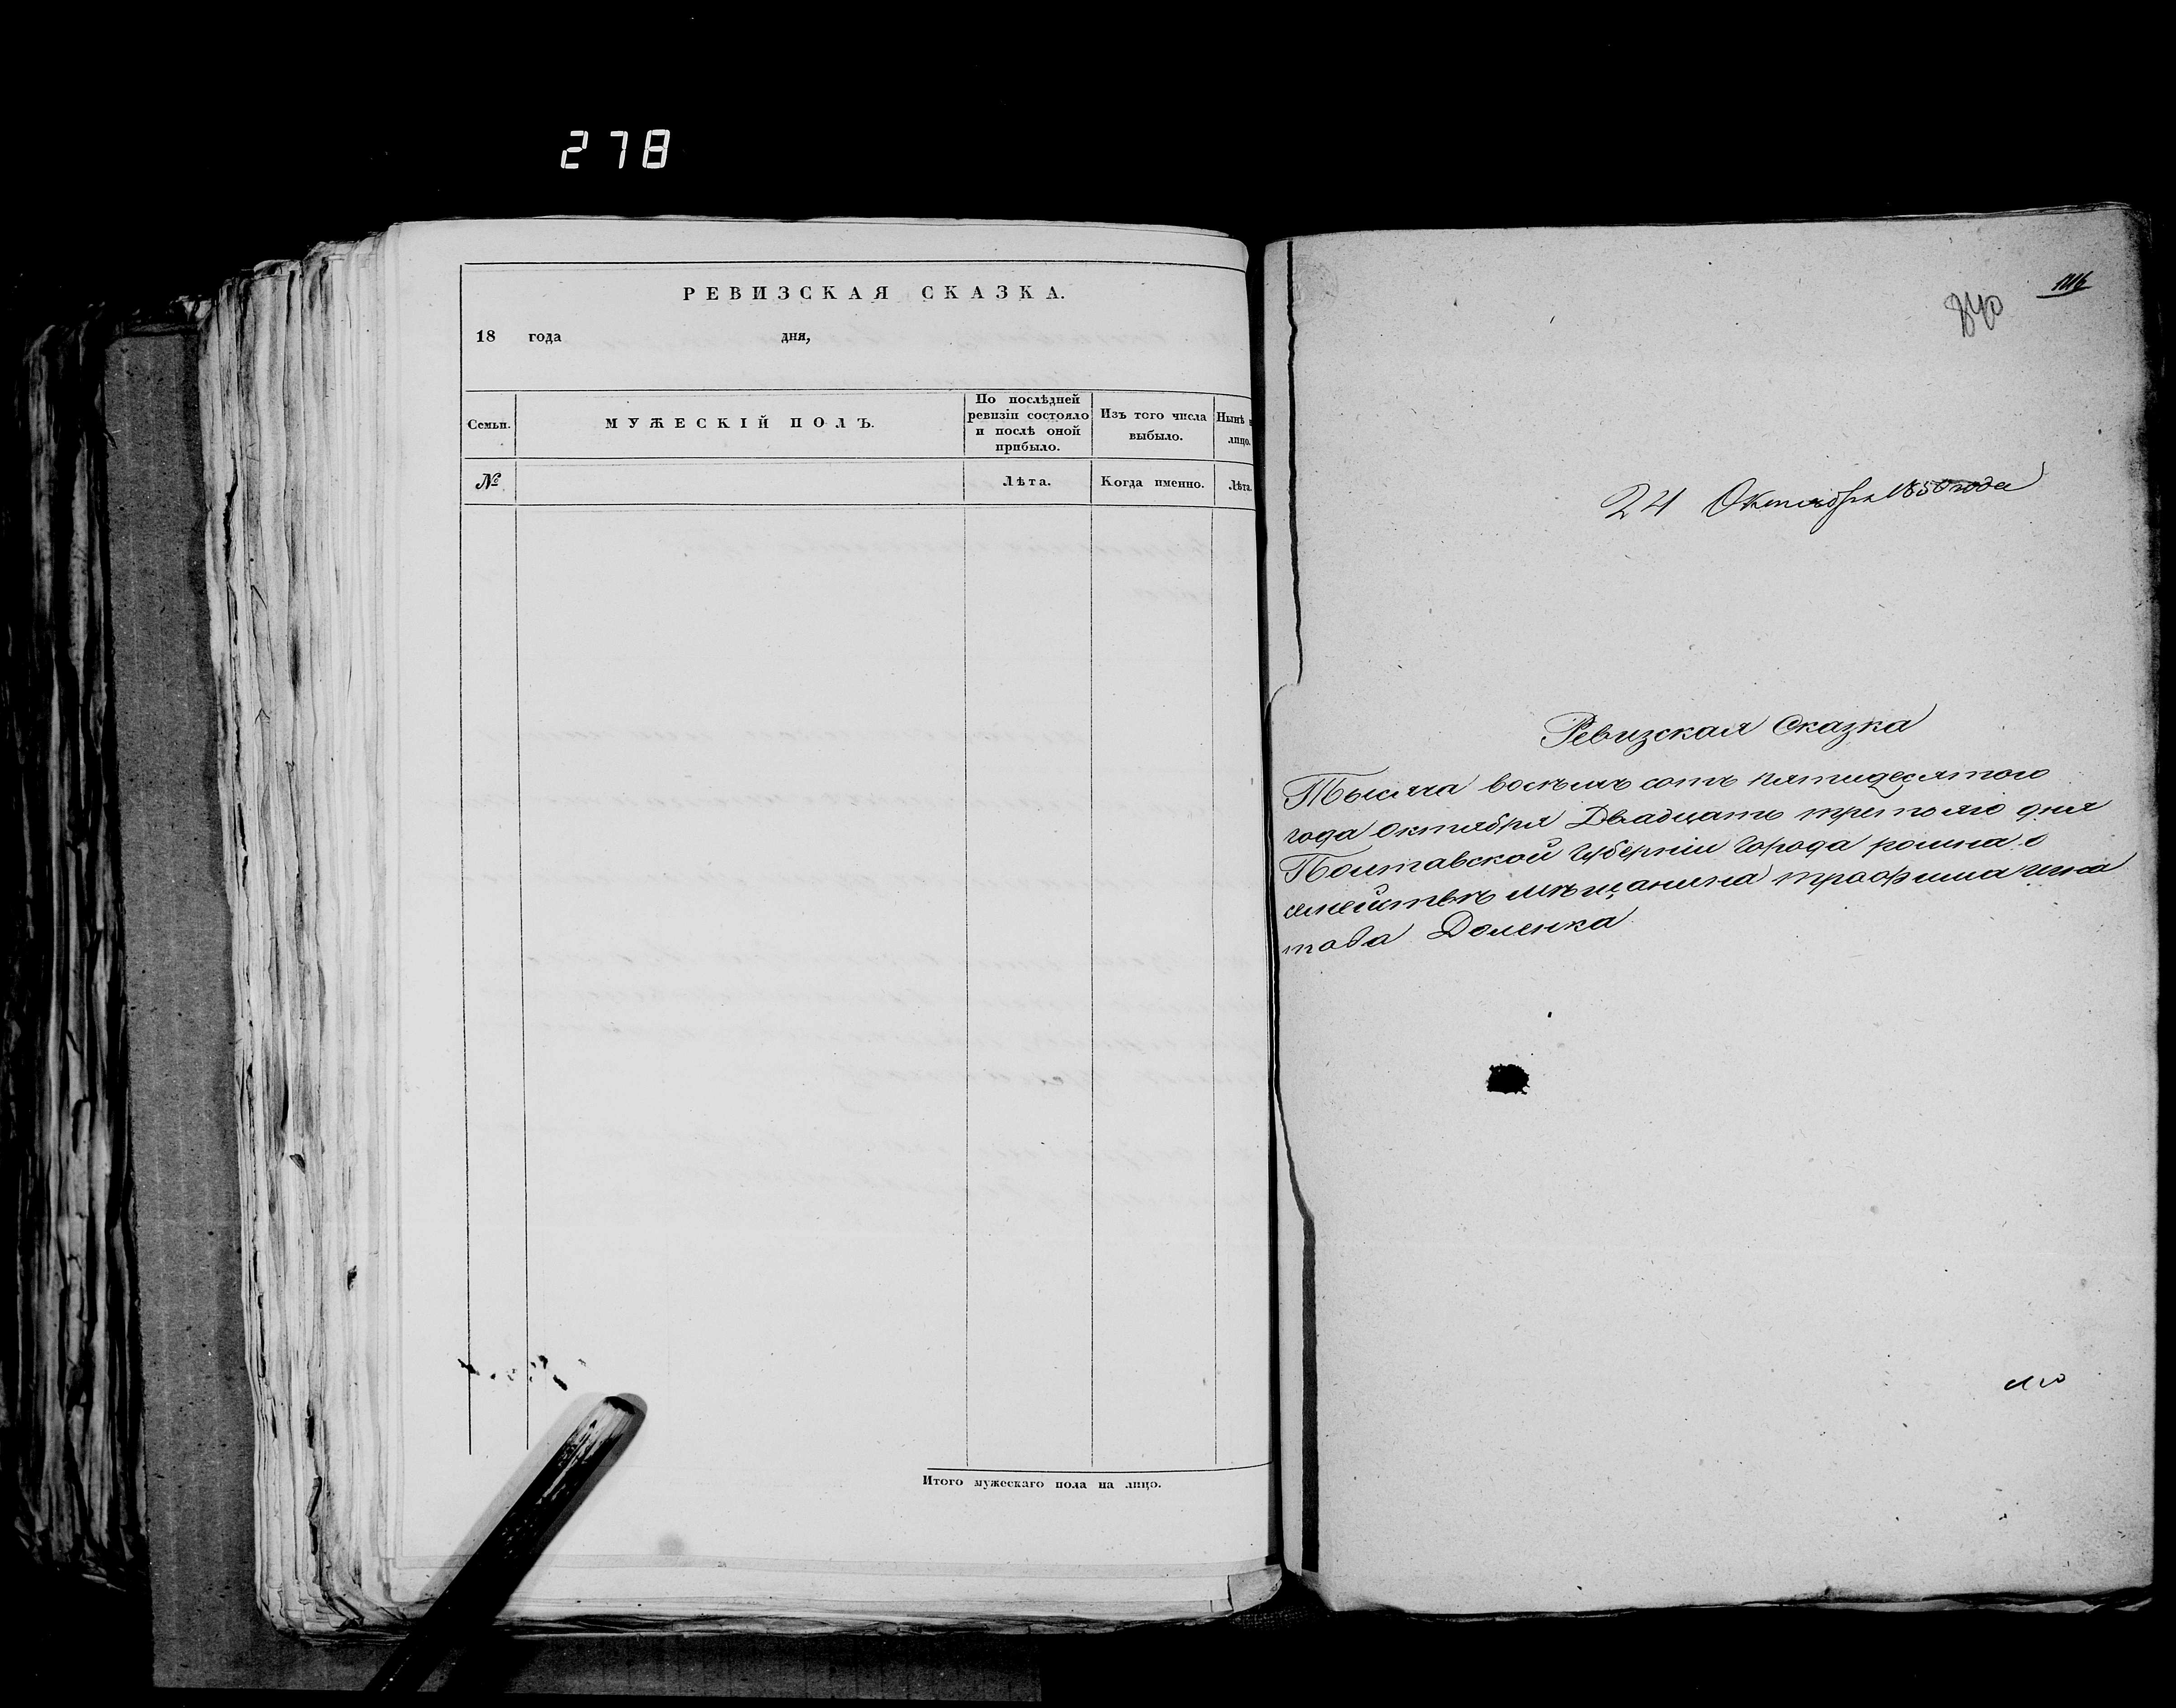 278
РЕВИЗСКАЯ СКАЗКА.
18 года дня,
Семьи.
МУЖЕСКІЙ ПОЛЪ.
По послѣдней
ревизіи состояло
и послѣ оной
прибыло.
Изъ того числа
выбыло.
Нынѣ н
лицо.
№
Лѣта.
Когда именно.
Лѣта.
Итого мужескаго пола на лицо.
840
24 Октября 1850 года
Ревизская Сказка
Тысяча восъемъ сотъ пятидесятого
года октября Двадцать третьяго дня
Полтавской губерніи города ромна о
семействъ мѣщанина трофима
Доленка